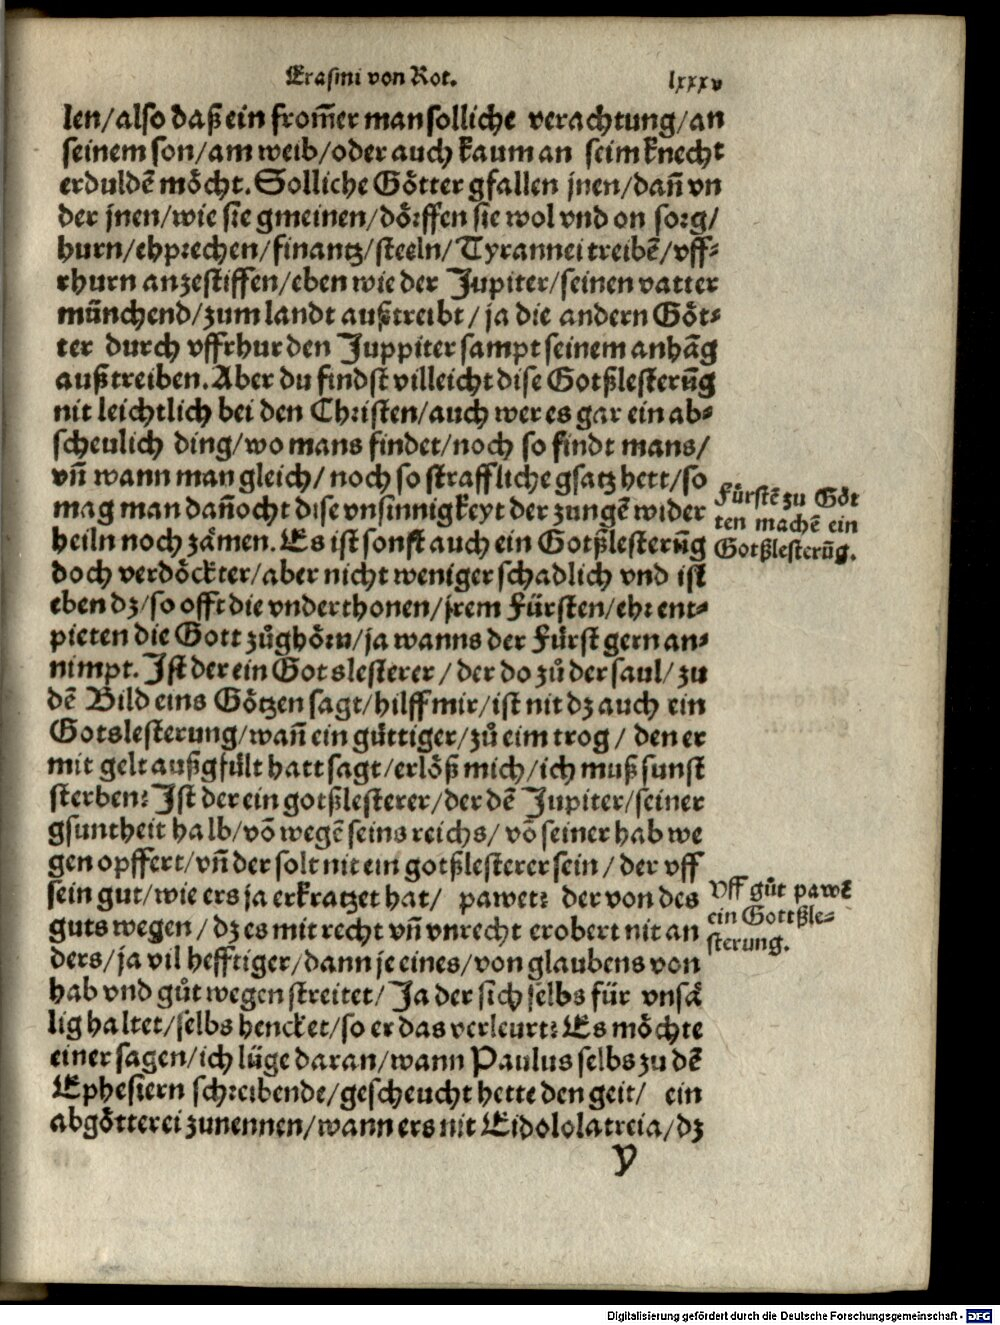 Erasmi von Rot. lxxxv
len/also daß ein from̄er man solliche verachtung/an
seinem son/am weib/oder auch kaum an seim knecht
erduldē möcht. Solliche Götter gfallen jnen/dañ vn
der jnen/wie sie gmeinen/dörffen sie wol vnd on sorg/
hurn/ehprechen/finantz/steeln/Tyrannei treibē/vff⸗
rhurn anzestiffen/eben wie der Jupiter/seinen vatter
münchend/zum landt außtreibt/ja die andern Göt⸗
ter durch vffrhur den Juppiter sampt seinem anhāg
außtreiben. Aber du findst villeicht dise Gotßlesterūg
nit leichtlich bei den Christen/auch wer es gar ein ab⸗
scheulich ding/wo mans findet/noch so findt mans/
vñ wann man gleich/noch so straffliche gsatz hett/so
mag man dañocht dise vnsinnigkeyt der zungē wider
heiln noch zämen. Es ist sonst auch ein Gotßlesterūg
doch verdöckter/aber nicht weniger schadlich vnd ist
eben dz/so offt die vnderthonen/jrem Fürsten/ehr ent⸗
pieten die Gott zůghörn/ja wanns der Fürst gern an⸗
nimpt. Ist der ein Gotslesterer/der do zů der saul/zu
dē Bild eins Götzen sagt/hilff mir/ist nit dz auch ein
Gotslesterung/wañ ein güttiger/zů eim trog/den er
mit gelt außgfült hatt sagt/erlöß mich/ich muß sunst
sterben? Ist der ein gotßlesterer/der dē Jupiter/seiner
gsuntheit halb/vō wegē seins reichs/vō seiner hab we
gen opffert/vñ der solt nit ein gotßlesterer sein/der vff
sein gut/wie ers ja erkratzet hat/ pawet? der von des
guts wegen/dz es mit recht vñ vnrecht erobert nit an
ders/ja vil hefftiger/dann je eines/von glaubens von
hab vnd gůt wegen streitet/Ja der sich selbs für vnsä
lig haltet/selbs hencket/so er das verleurt? Es möchte
einer sagen/ich lüge daran/wann Paulus selbs zu dē
Ephesiern schreibende/gescheucht hette den geit/ ein
abgötterei zunennen/wann ers nit Eidololatreia/dz
y
Fürstē zu Göt
ten machē ein
Gotßlesterūg.
Vff gůt pawē
ein Gottßle⸗
sterung.
Digitalisierung gefördert durch die Deutsche Forschungsgemeinschaft - DFG